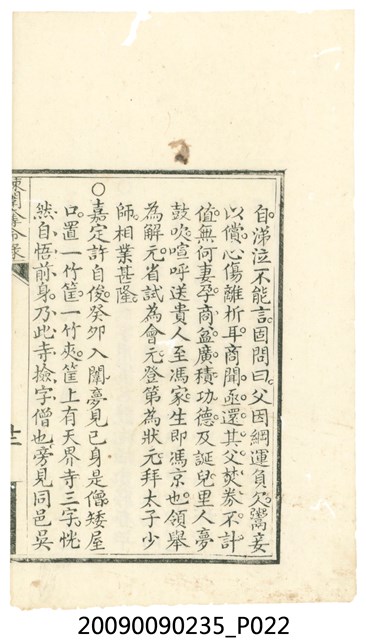 自涕泣不能言。固問曰。父因綱運負欠。鬻妾
以償心傷離折耳。商聞。亟還其父。焚券不計
值。無何妻孕。商益廣積功德。及誕兒里人夢
鼓吹喧呼送貴人至馮家。生即馮京也。領舉
為解元。省試為會元。登第為狀元。拜太子少
師。相業甚隆。
○嘉定許自俊。癸卯入闈。夢見己身是僧。矮屋
口置一竹筐。一竹夾。筐上有天界寺三字。恍
然自悟前身。乃此寺撿字僧也。旁見同邑吳
20090090235_P022